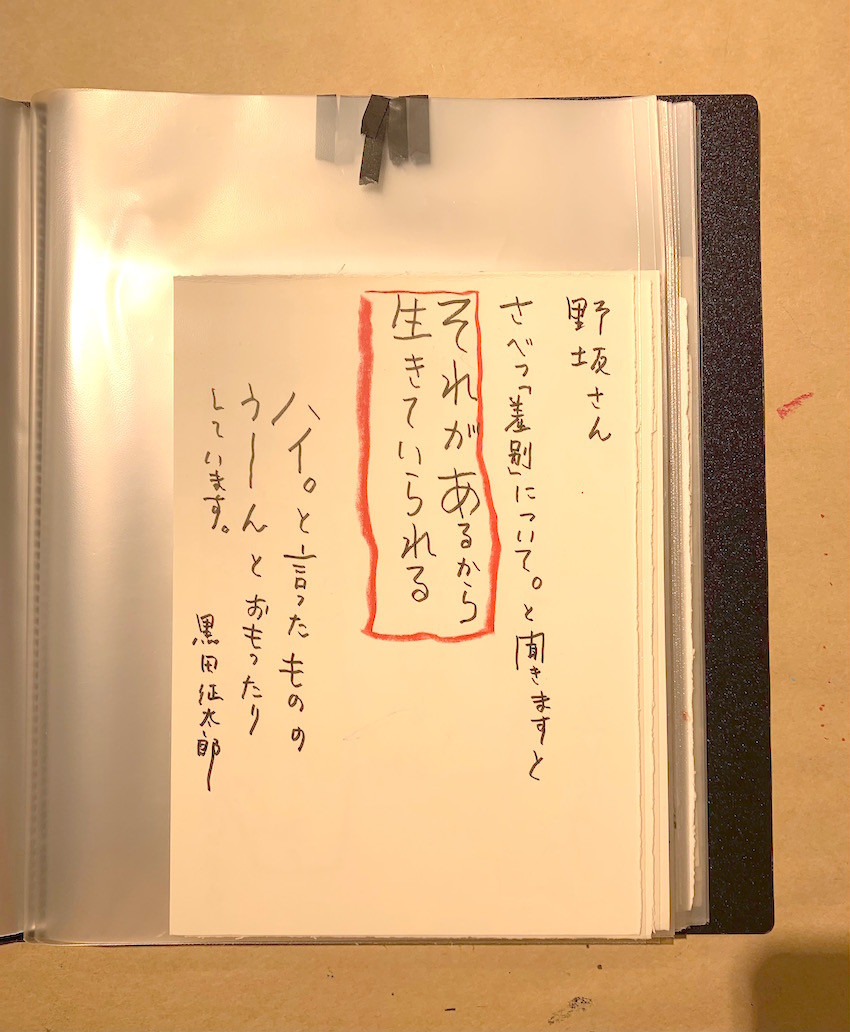 野坂さん
さべつ「差別」について。と聞きますと
それがあるから
生きていられる
ハイ。と言ったものの
うーんとおもったり
しています。
黒田征太郎